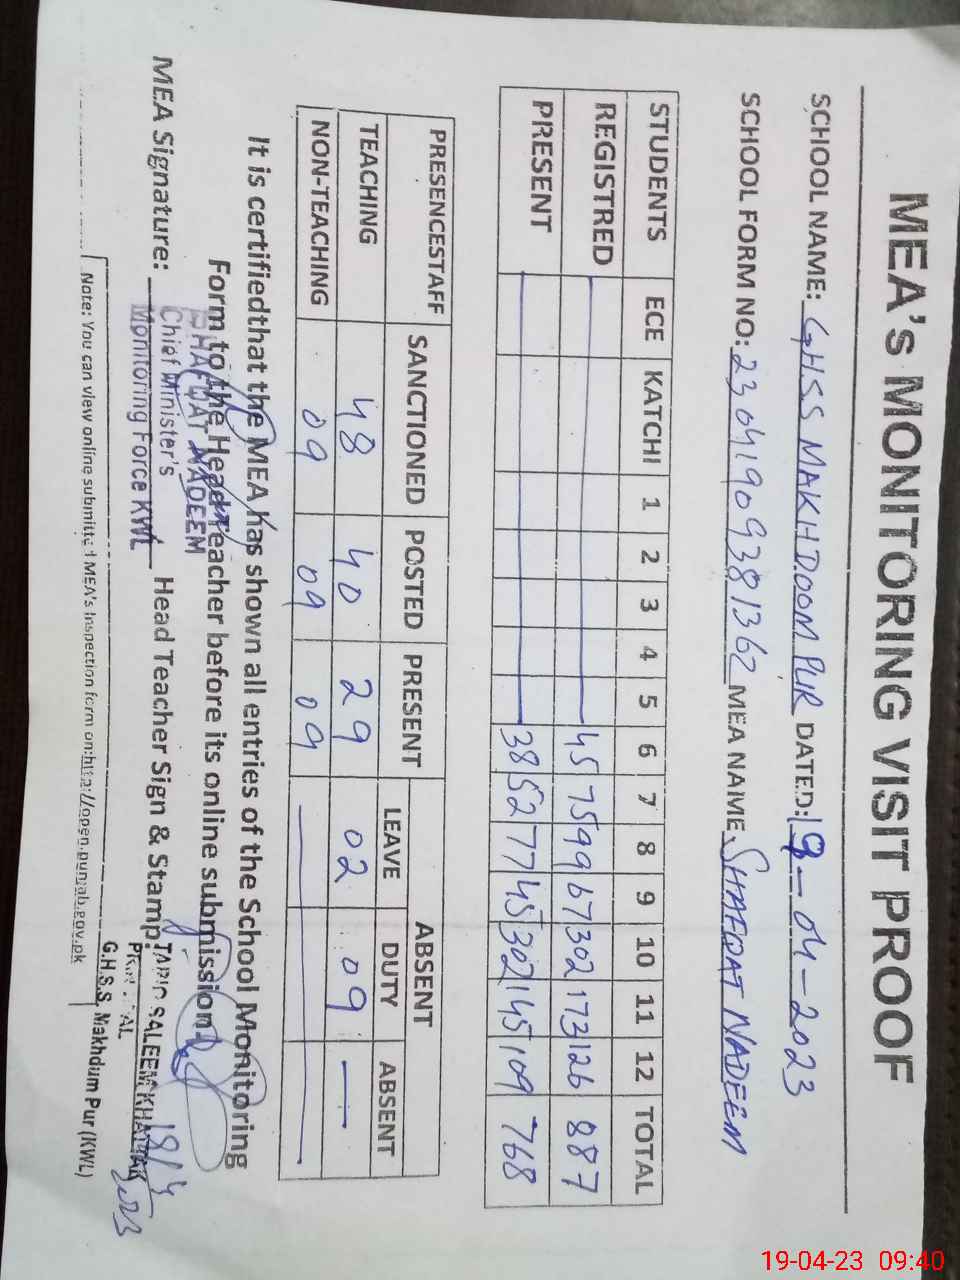 MEA's MONITORING VISIT PROOF
SCHOOL NAME: GHSS MAKHDOOM PUR DATED: 19-04-2023
SCHOOL FORM NO: 23041909381362 MEA NAME: SHAFQAT NADEEM
STUDENTS ECE KATCHI 1 2 3 4 5 6 7 8 9 10 11 12 TOTAL
REGISTRED 45 75 99 67 302 173 126 887
PRESENT 38 52 77 45 302 145 109 768
PRESENCESTAFF SANCTIONED POSTED PRESENT ABSENT
LEAVE DUTY ABSENT
TEACHING 48 40 29 02 09 —
NON-TEACHING 09 09 09
It is certifiedthat the MEA has shown all entries of the School Monitoring
Form to the Head Teacher before its online submission.
SHAFQAT NADEEM
Chief Minister's
Monitoring Force KWL
MEA Signature: Head Teacher Sign & Stamp:
TARIQ SALEEM KHATTAK
PRINCIPAL
G.H.S.S. Makhdum Pur (KWL)
Note: You can view online submitted MEA's Inspection form on:http://open.punjab.gov.pk
19-04-23 09:40